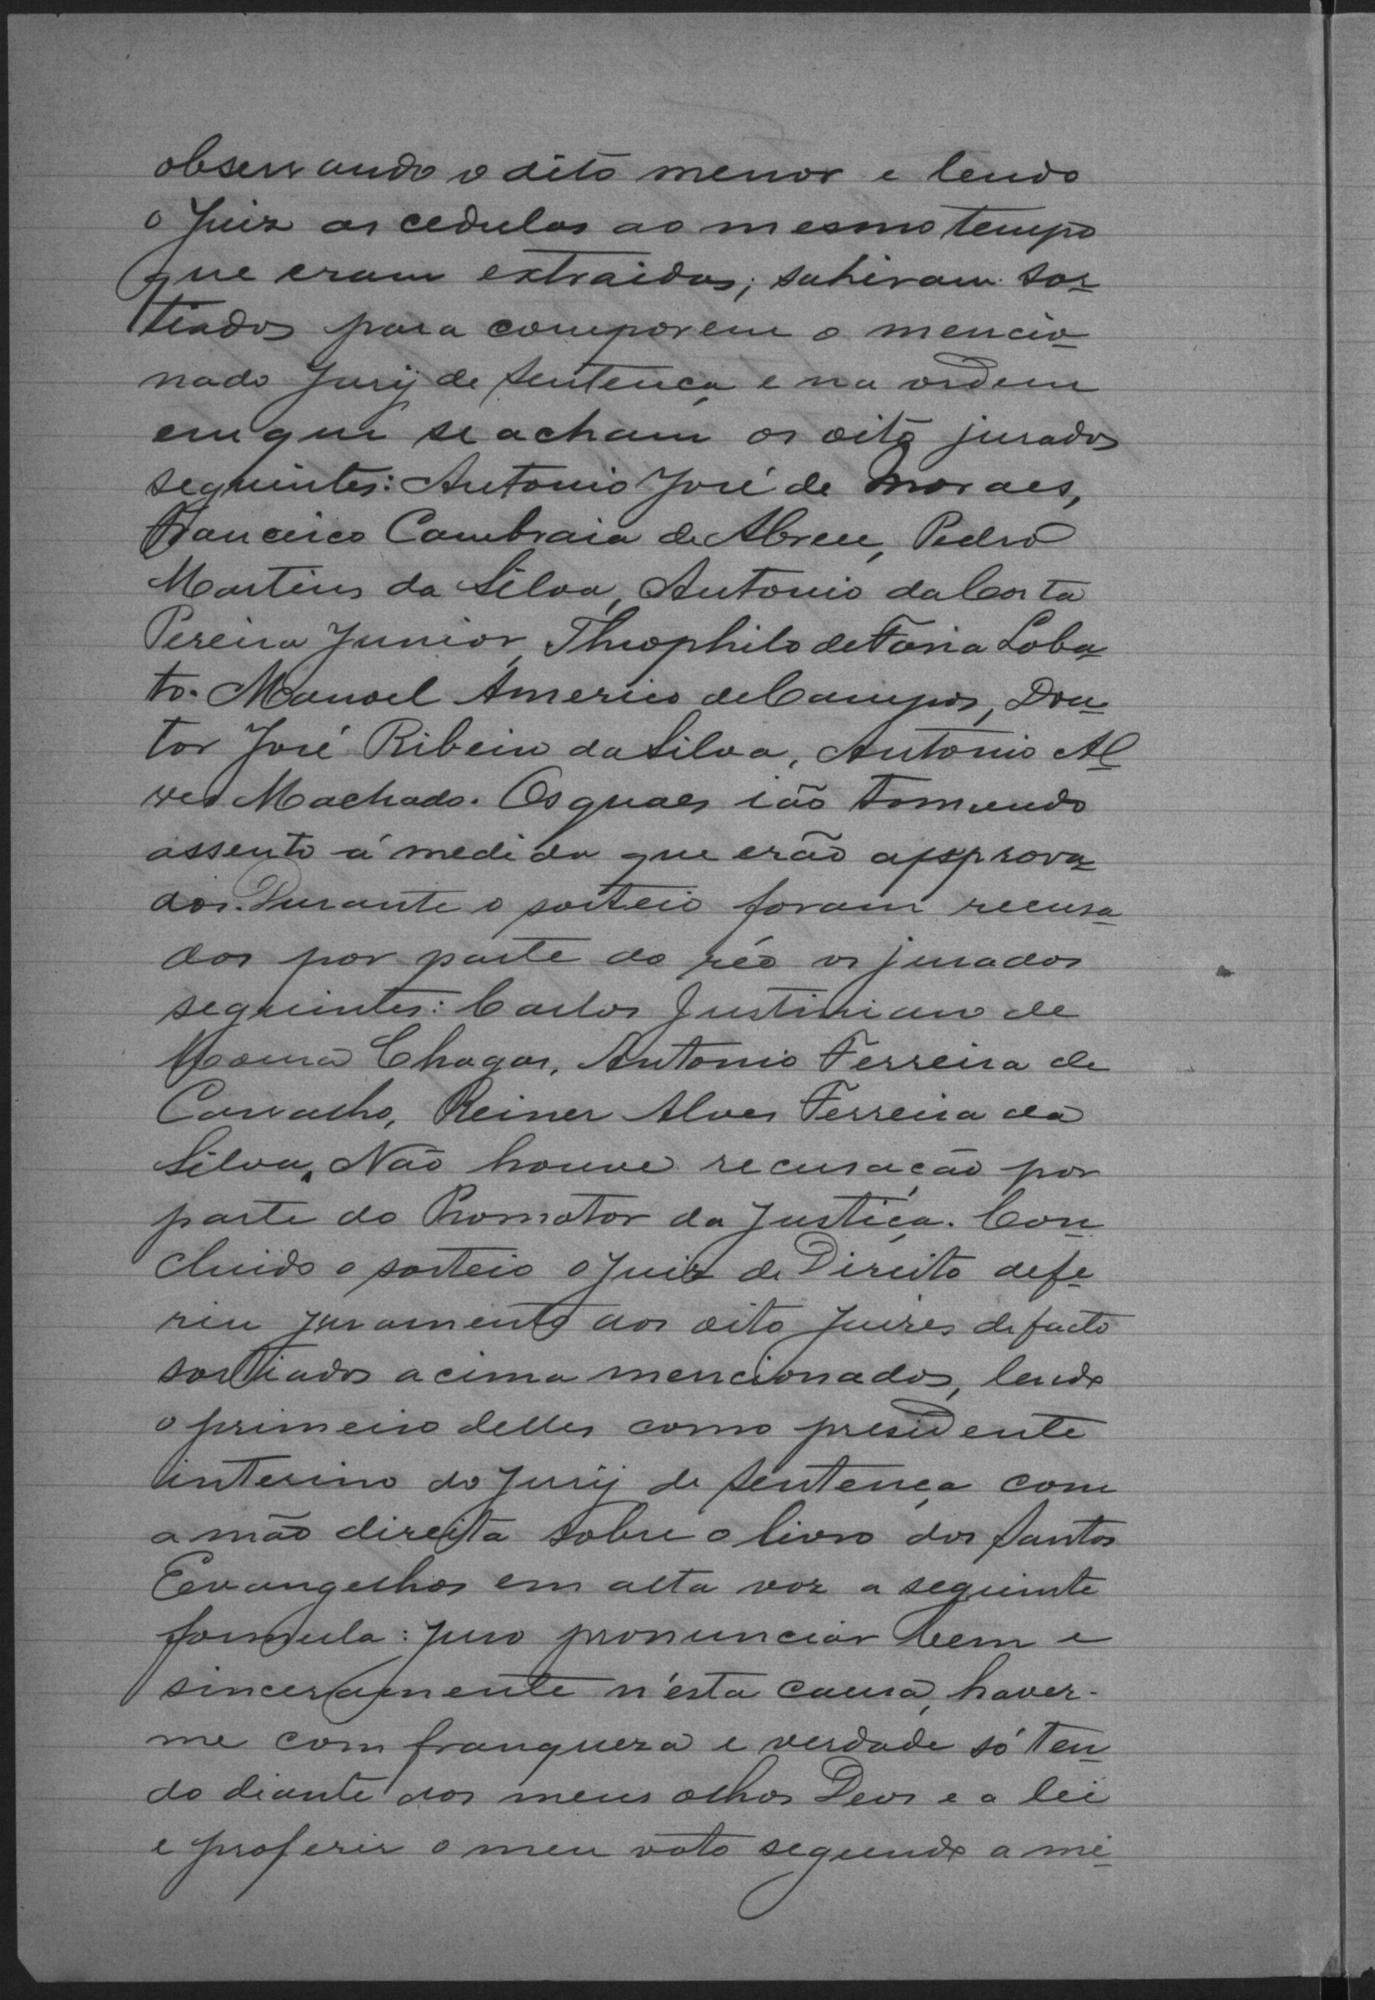 observando o dito menor e lendo
o Juiz as cedulas ao mesmo tempo
que eram extraidas; sahiram sor-
tiados para comporem o mencio-
nado Jury de Sentença e na ordem
em que se acham os oito jurados
seguintes: Antonio José de Moraes,
Francisco Cambraia de Abreu, Pedro
Martins da Silva, Antonio da Costa
Pereira Junior, Theophilo de Faria Loba-
to. Manoel Americo de Campos, Dou-
tor José Ribeiro da Silva, Antonio Al-
ves Machado. Os quaes ião tomando
assento á medida que erão approva-
dos. Durante o sorteio foram recusa-
dos por parte do réo os jurados
seguintes: Carlos Justiniano de
Moura Chagas, Antonio Ferreira de
Carvalho, Reiner Alves Ferreira da
Silva. Não houve recusação por
parte do Promotor da Justiça. Con-
cluido o sorteio o Juiz de Direito defe-
riu juramento aos oito Juizes de facto
sortiados acima mencionados, lendo
o primeiro delles como presidente
interino do Jury de Sentença com
a mão direita sobre o livro dos Santos
Evangelhos em alta voz a seguinte
formula: Juro pronunciar bem e
sinceramente n'esta causa, haver-
me com franqueza e verdade só ten-
do diante dos meus olhos Deos e a lei
e proferir o meu voto segundo a mi-